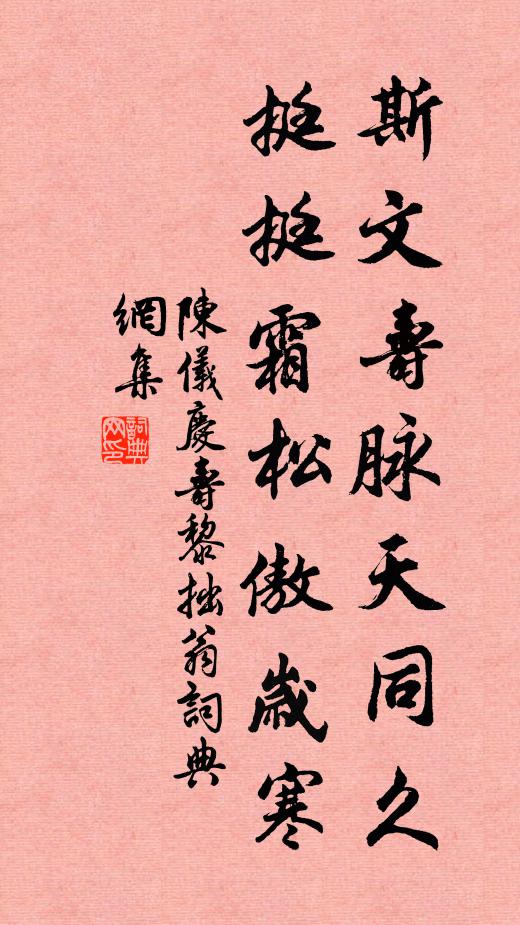 斯文壽脉天同久
挺挺霜松傲歲寒
陳儀慶壽黎拙翁詞典
網集
詞典
网印